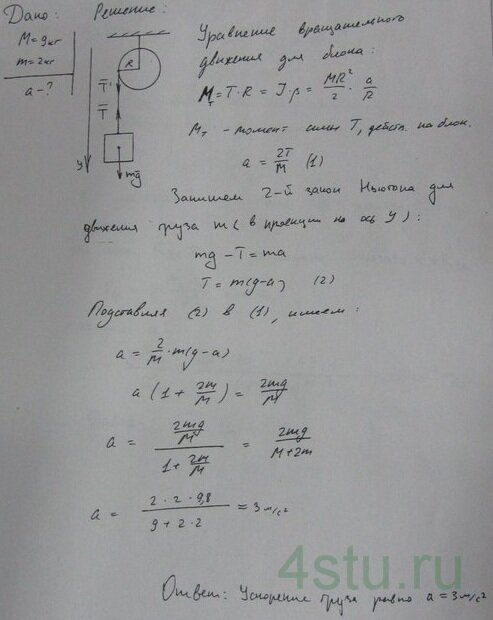 Дано: Решение:
M = 9кг
m = 2кг
a - ?
R
T'
T
y
mg
Уравнение вращательного
движения для блока:
M_T = T·R = J·β = MR²/2 · a/R
M_T - момент силы T, действ. на блок.
a = 2T/M (1)
Запишем 2-й закон Ньютона для
движения груза m (в проекции на ось y):
mg - T = ma
T = m(g-a) (2)
Подставляя (2) в (1), имеем:
a = 2/M · m(g-a)
a (1 + 2m/M) = 2mg/M
a = (2mg/M)/(1 + 2m/M) = 2mg/(M+2m)
a = (2·2·9,8)/(9+2·2) = 3 м/с²
4stu.ru
Ответ: Ускорение груза равно a = 3 м/с²